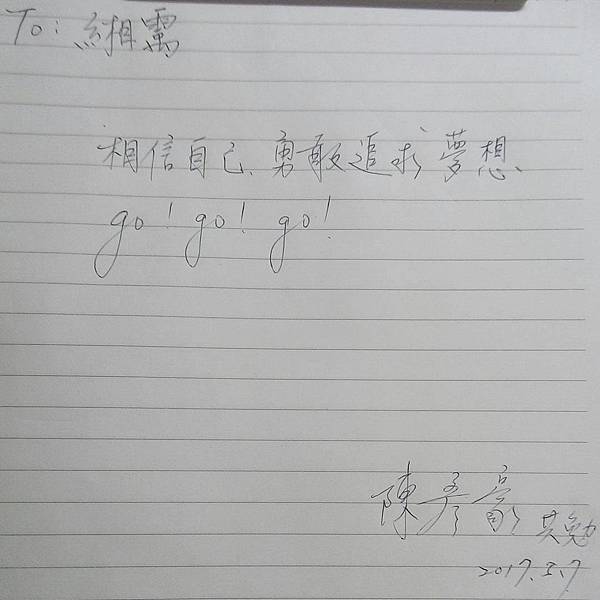 To: 緗霱
相信自己、勇敢追求夢想、
go! go! go!
陳彥豪 共勉
2017.5.7